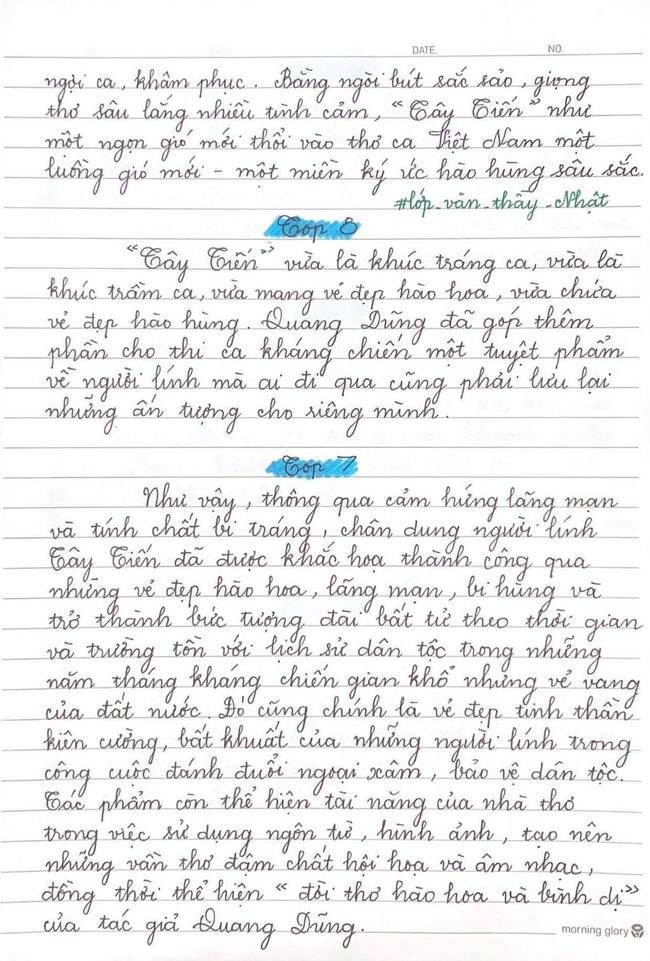 DATE. NO.
ngợi ca, khâm phục. Bằng ngòi bút sắc sảo, giọng
thơ sâu lắng nhiều tình cảm, “Tây Tiến” như
một ngọn gió mới thổi vào thơ ca Việt Nam một
luồng gió mới - một miền ký ức hào hùng sâu sắc.
#lớp-văn-thầy-Nhật
Top 8
“Tây Tiến” vừa là khúc tráng ca, vừa là
khúc trầm ca, vừa mang vẻ đẹp hào hoa, vừa chứa
vẻ đẹp hào hùng. Quang Dũng đã góp thêm
phần cho thi ca kháng chiến một tuyệt phẩm
về người lính mà ai đi qua cũng phải lưu lại
những ấn tượng cho riêng mình.
Top 7
Như vậy, thông qua cảm hứng lãng mạn
và tính chất bi tráng, chân dung người lính
Tây Tiến đã được khắc hoạ thành công qua
những vẻ đẹp hào hoa, lãng mạn, bi hùng và
trở thành bức tượng đài bất tử theo thời gian
và trường tồn với lịch sử dân tộc trong những
năm tháng kháng chiến gian khổ nhưng vẻ vang
của đất nước. Đó cũng chính là vẻ đẹp tinh thần
kiên cường, bất khuất của những người lính trong
công cuộc đánh đuổi ngoại xâm, bảo vệ dân tộc.
Tác phẩm còn thể hiện tài năng của nhà thơ
trong việc sử dụng ngôn từ, hình ảnh, tạo nên
những vần thơ đậm chất hội hoạ và âm nhạc,
đồng thời thể hiện “ đời thơ hào hoa và bình dị”
của tác giả Quang Dũng.
morning glory